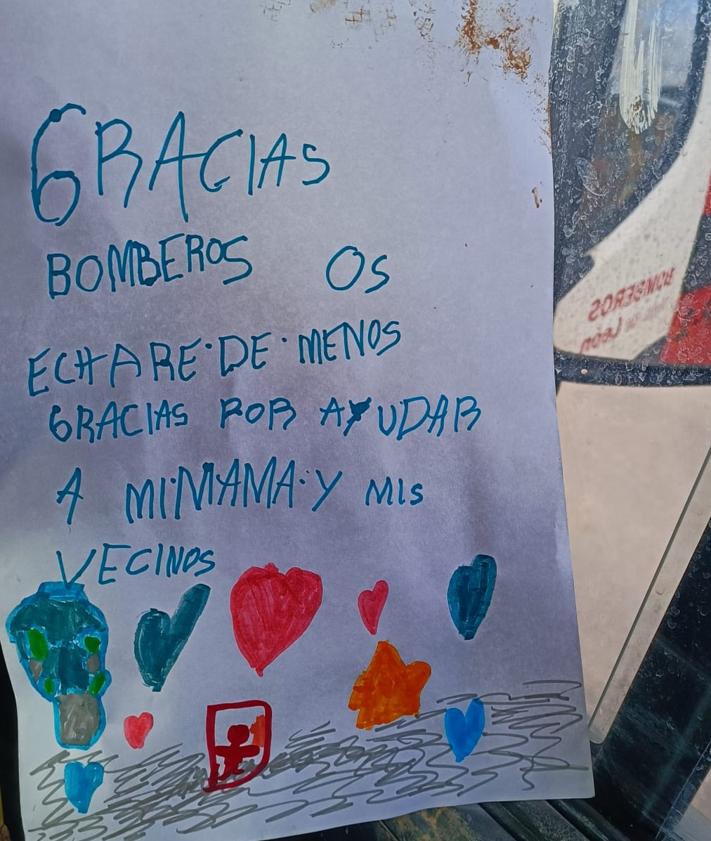 GRACIAS
BOMBEROS OS
ECHARE·DE·MENOS
GRACIAS POR AYUDAR
A MI·MAMA·Y MIS
VECINOS
BOMBEROS
León